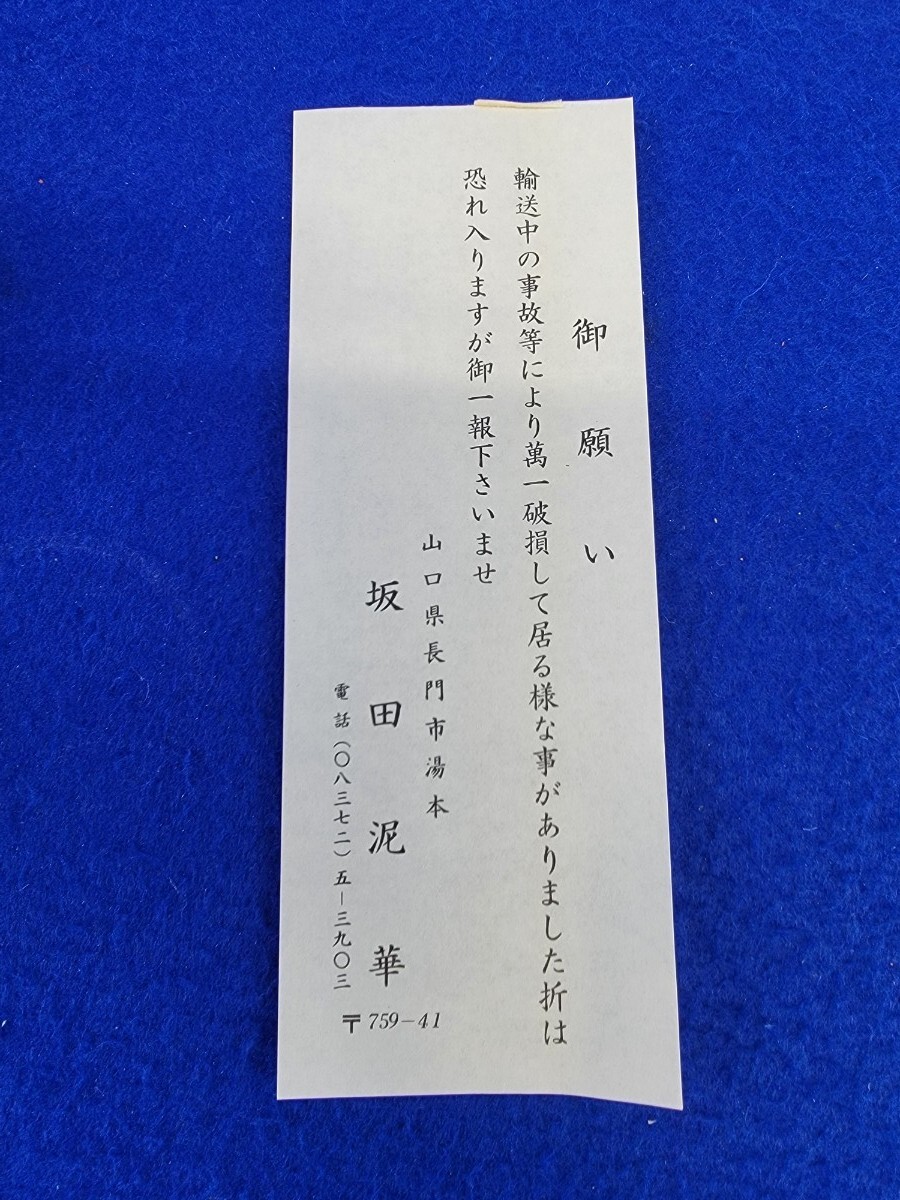 御願い
輸送中の事故等により萬一破損して居る様な事がありました折は
恐れ入りますが御一報下さいませ
山口県長門市湯本
坂田泥華
電話(〇八三七二)五－三九〇三
〒759−41